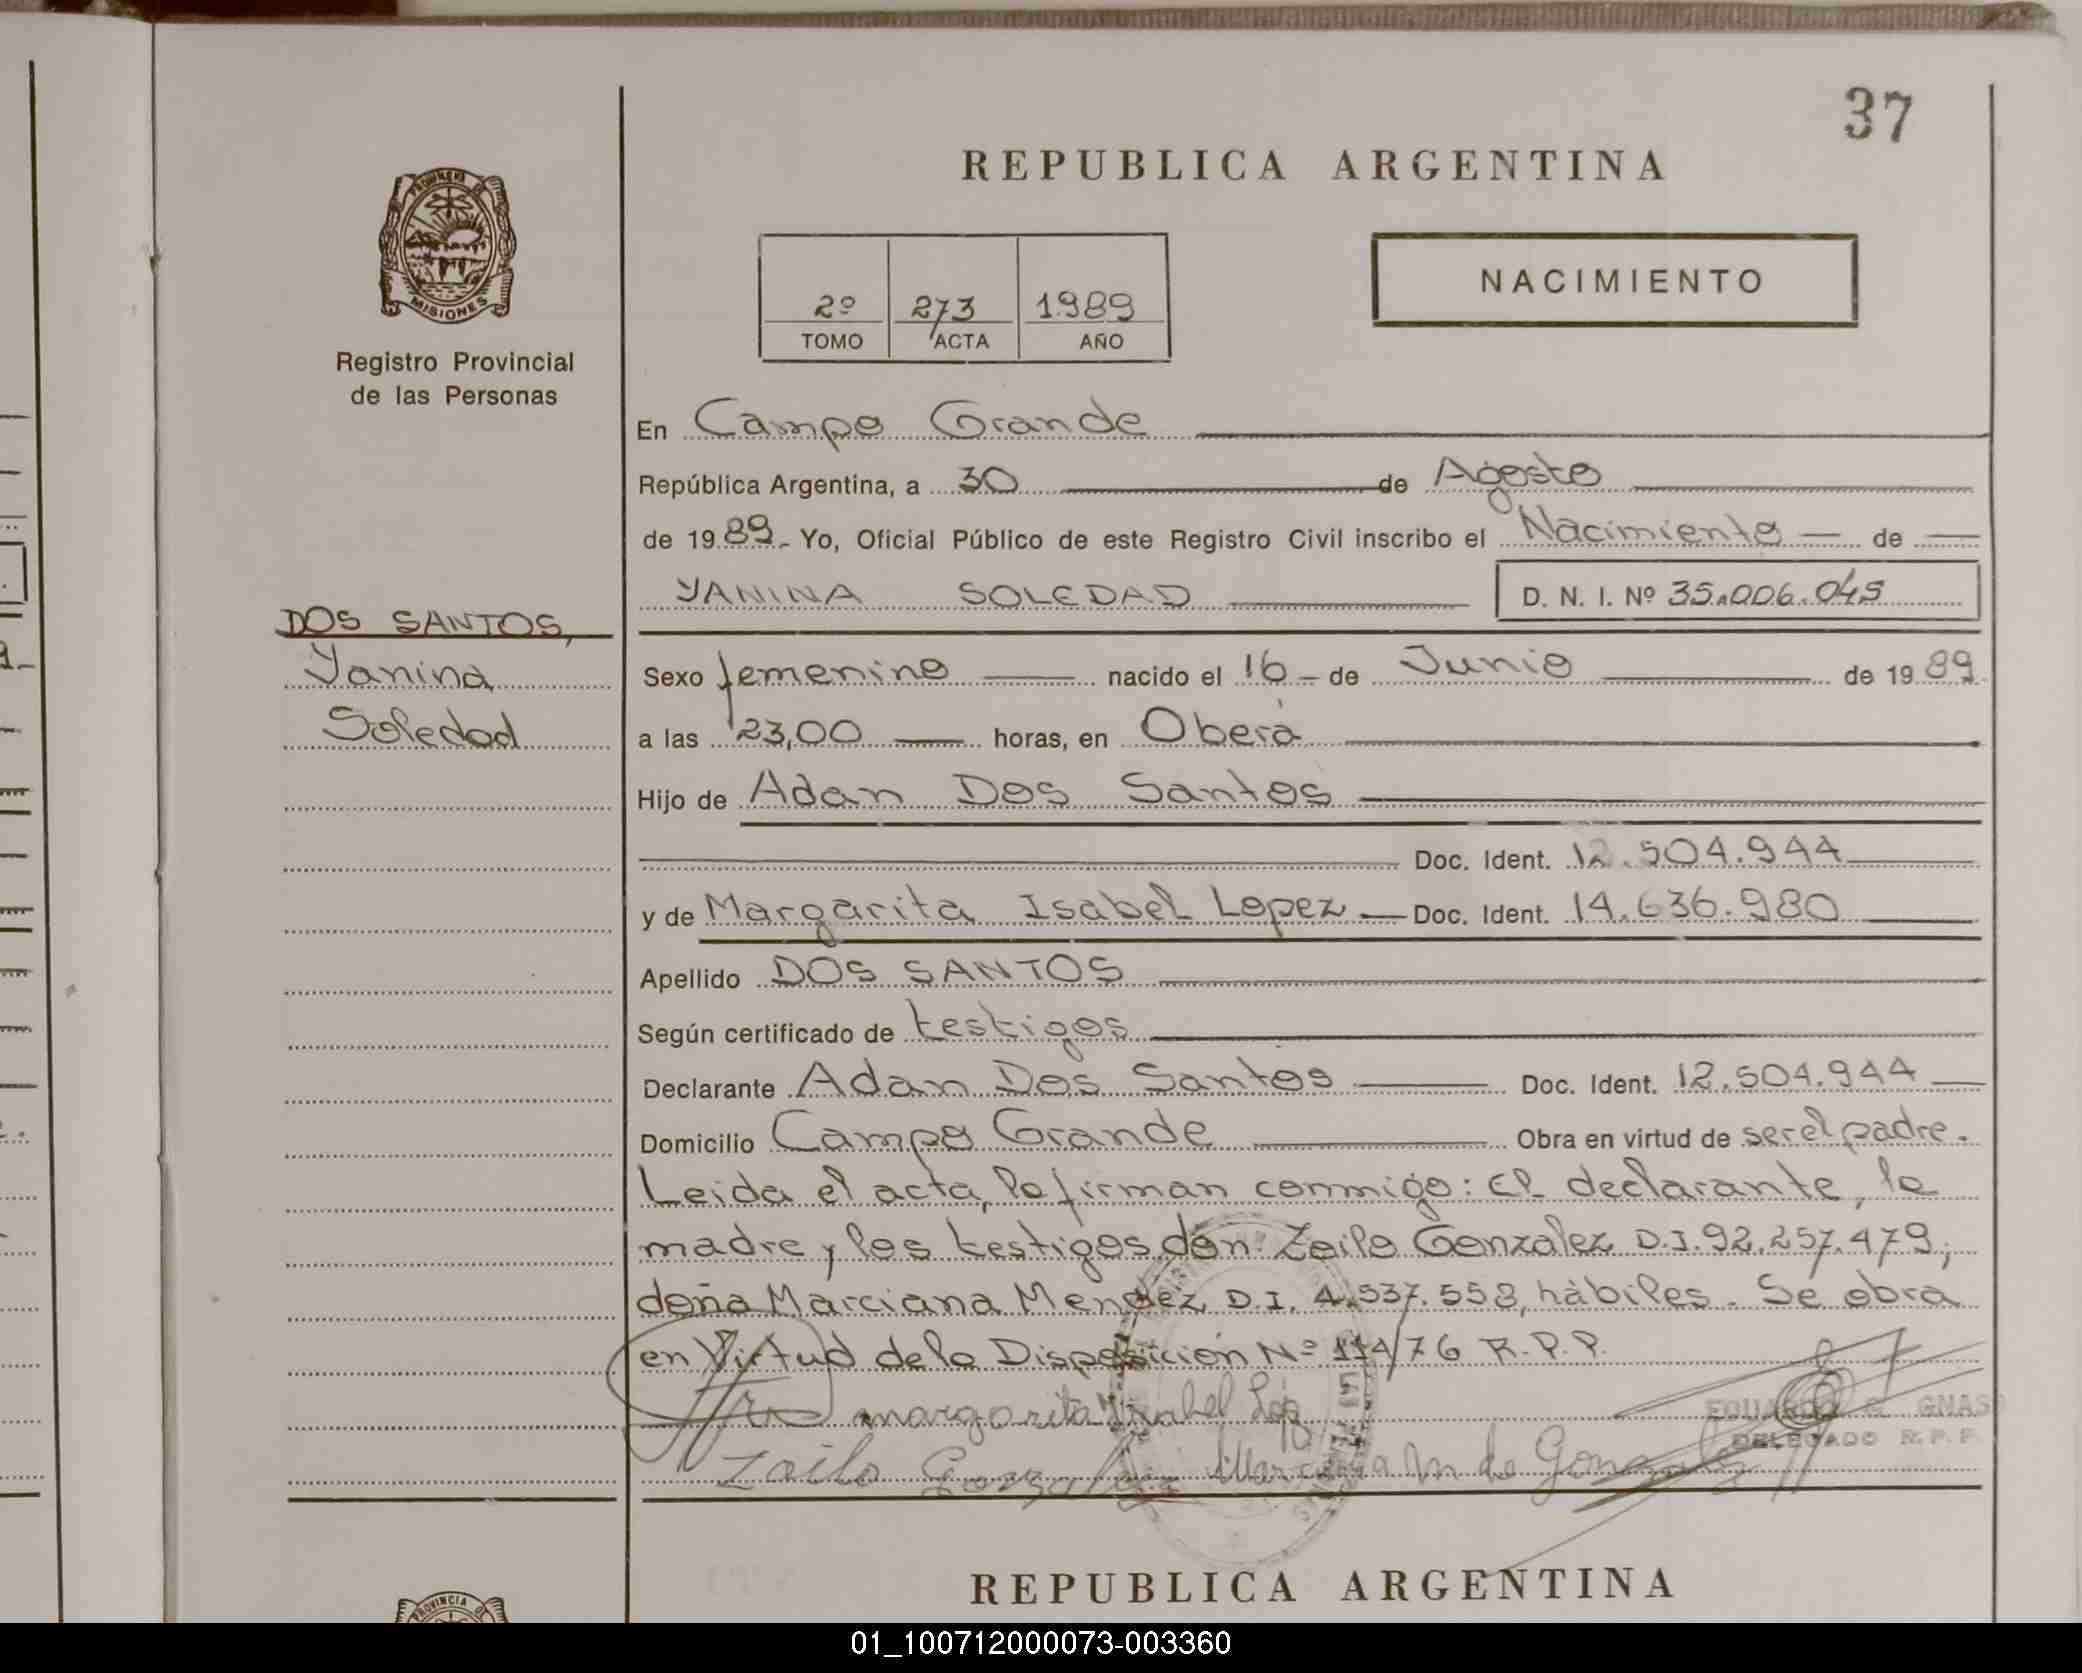 37
REPUBLICA ARGENTINA
PROVINCIA DE
MISIONES
Registro Provincial
de las Personas
2º 273 1989
TOMO ACTA AÑO
NACIMIENTO
En Campo Grande
República Argentina, a 30 de Agosto
de 1989.- Yo, Oficial Público de este Registro Civil inscribo el Nacimiento — de —
YANINA SOLEDAD D. N. I. Nº 35.006.045
DOS SANTOS,
Yanina
Soledad
Sexo femenino nacido el 16 - de Junio de 1989
a las 23,00 horas, en Oberá
Hijo de Adan Dos Santos
Doc. Ident. 12.504.944
y de Margarita Isabel Lopez — Doc. Ident. 14.636.980
Apellido DOS SANTOS
Según certificado de testigos
Declarante Adan Dos Santos Doc. Ident. 12.504.944
Domicilio Campo Grande Obra en virtud de ser el padre.
Leida el acta, la firman conmigo: El declarante, la
madre y los testigos don Zoilo Gonzalez D.I. 92.257.479;
doña Marciana Mendez D.I. 4.537.558, hábiles. Se obra
en Virtud de la Disposición Nº 114/76 R.P.P.
margarita Isabel Lopez
EDUARDO G. GNAS
DELEGADO R.P.P.
Zoilo Gonzalez Marciana M de Gonzalez
REPUBLICA ARGENTINA
PROVINCIA DE
01_100712000073-003360